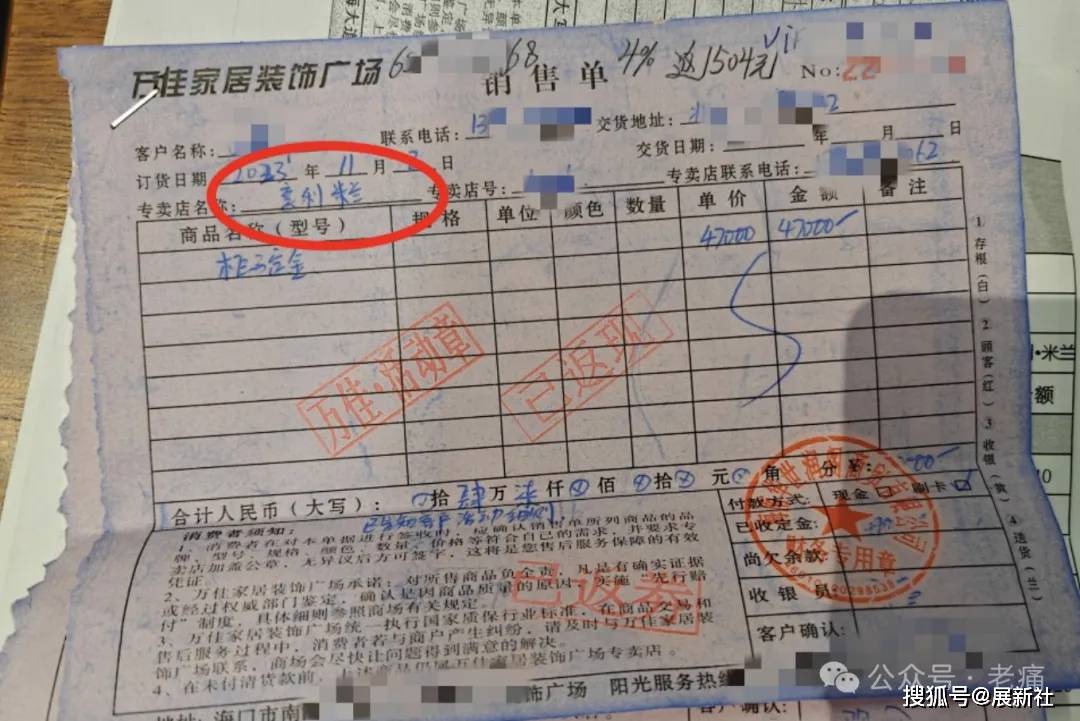 万佳家居装饰广场
销售单
4% 返1504元
No:22
客户名称:
联系电话:13
交货地址:
订货日期 2023年11月 日
交货日期: 年 月 日
专卖店名称:意利粒
专卖店号:
专卖店联系电话: 62
商品名称(型号) 规格 单位 颜色 数量 单价 金额 备注
47000 47000
万佳·活动章
已返现
1 存根(白) 2 顾客(红) 3 收银(黄) 4 送货(兰)
合计人民币(大写): 拾肆万柒仟 佰 拾 元 角 分
付款方式: 现金 刷卡
已收定金:
尚欠余款:
收银员
客户确认:
财务专用章
已返券
消费者须知:
1、消费者在对本单据进行签收时,应确认销售单所列商品的品
牌、型号、规格、颜色、数量、价格等符合自己的需求,并要求专
卖店加盖公章,无异议后方可签字,这将是您售后服务保障的有效
凭证。
2、万佳家居装饰广场承诺:对所售商品负全责,凡是有确实证据
或经过权威部门鉴定,确认是因商品质量的原因,实施“先行赔
付”制度,具体细则参照商场有关规定。
3、万佳家居装饰广场统一执行国家质保行业标准,在商品交易和
售后服务过程中,消费者若与商户产生纠纷,请及时与万佳家居装
饰广场联系,商场会尽快让问题得到满意的解决。
4、在未付清货款前,上述商品仍属万佳家居装饰广场专卖店。
饰广场 阳光服务热线
地址:海口市南
公众号·老痛
搜狐号@展新社